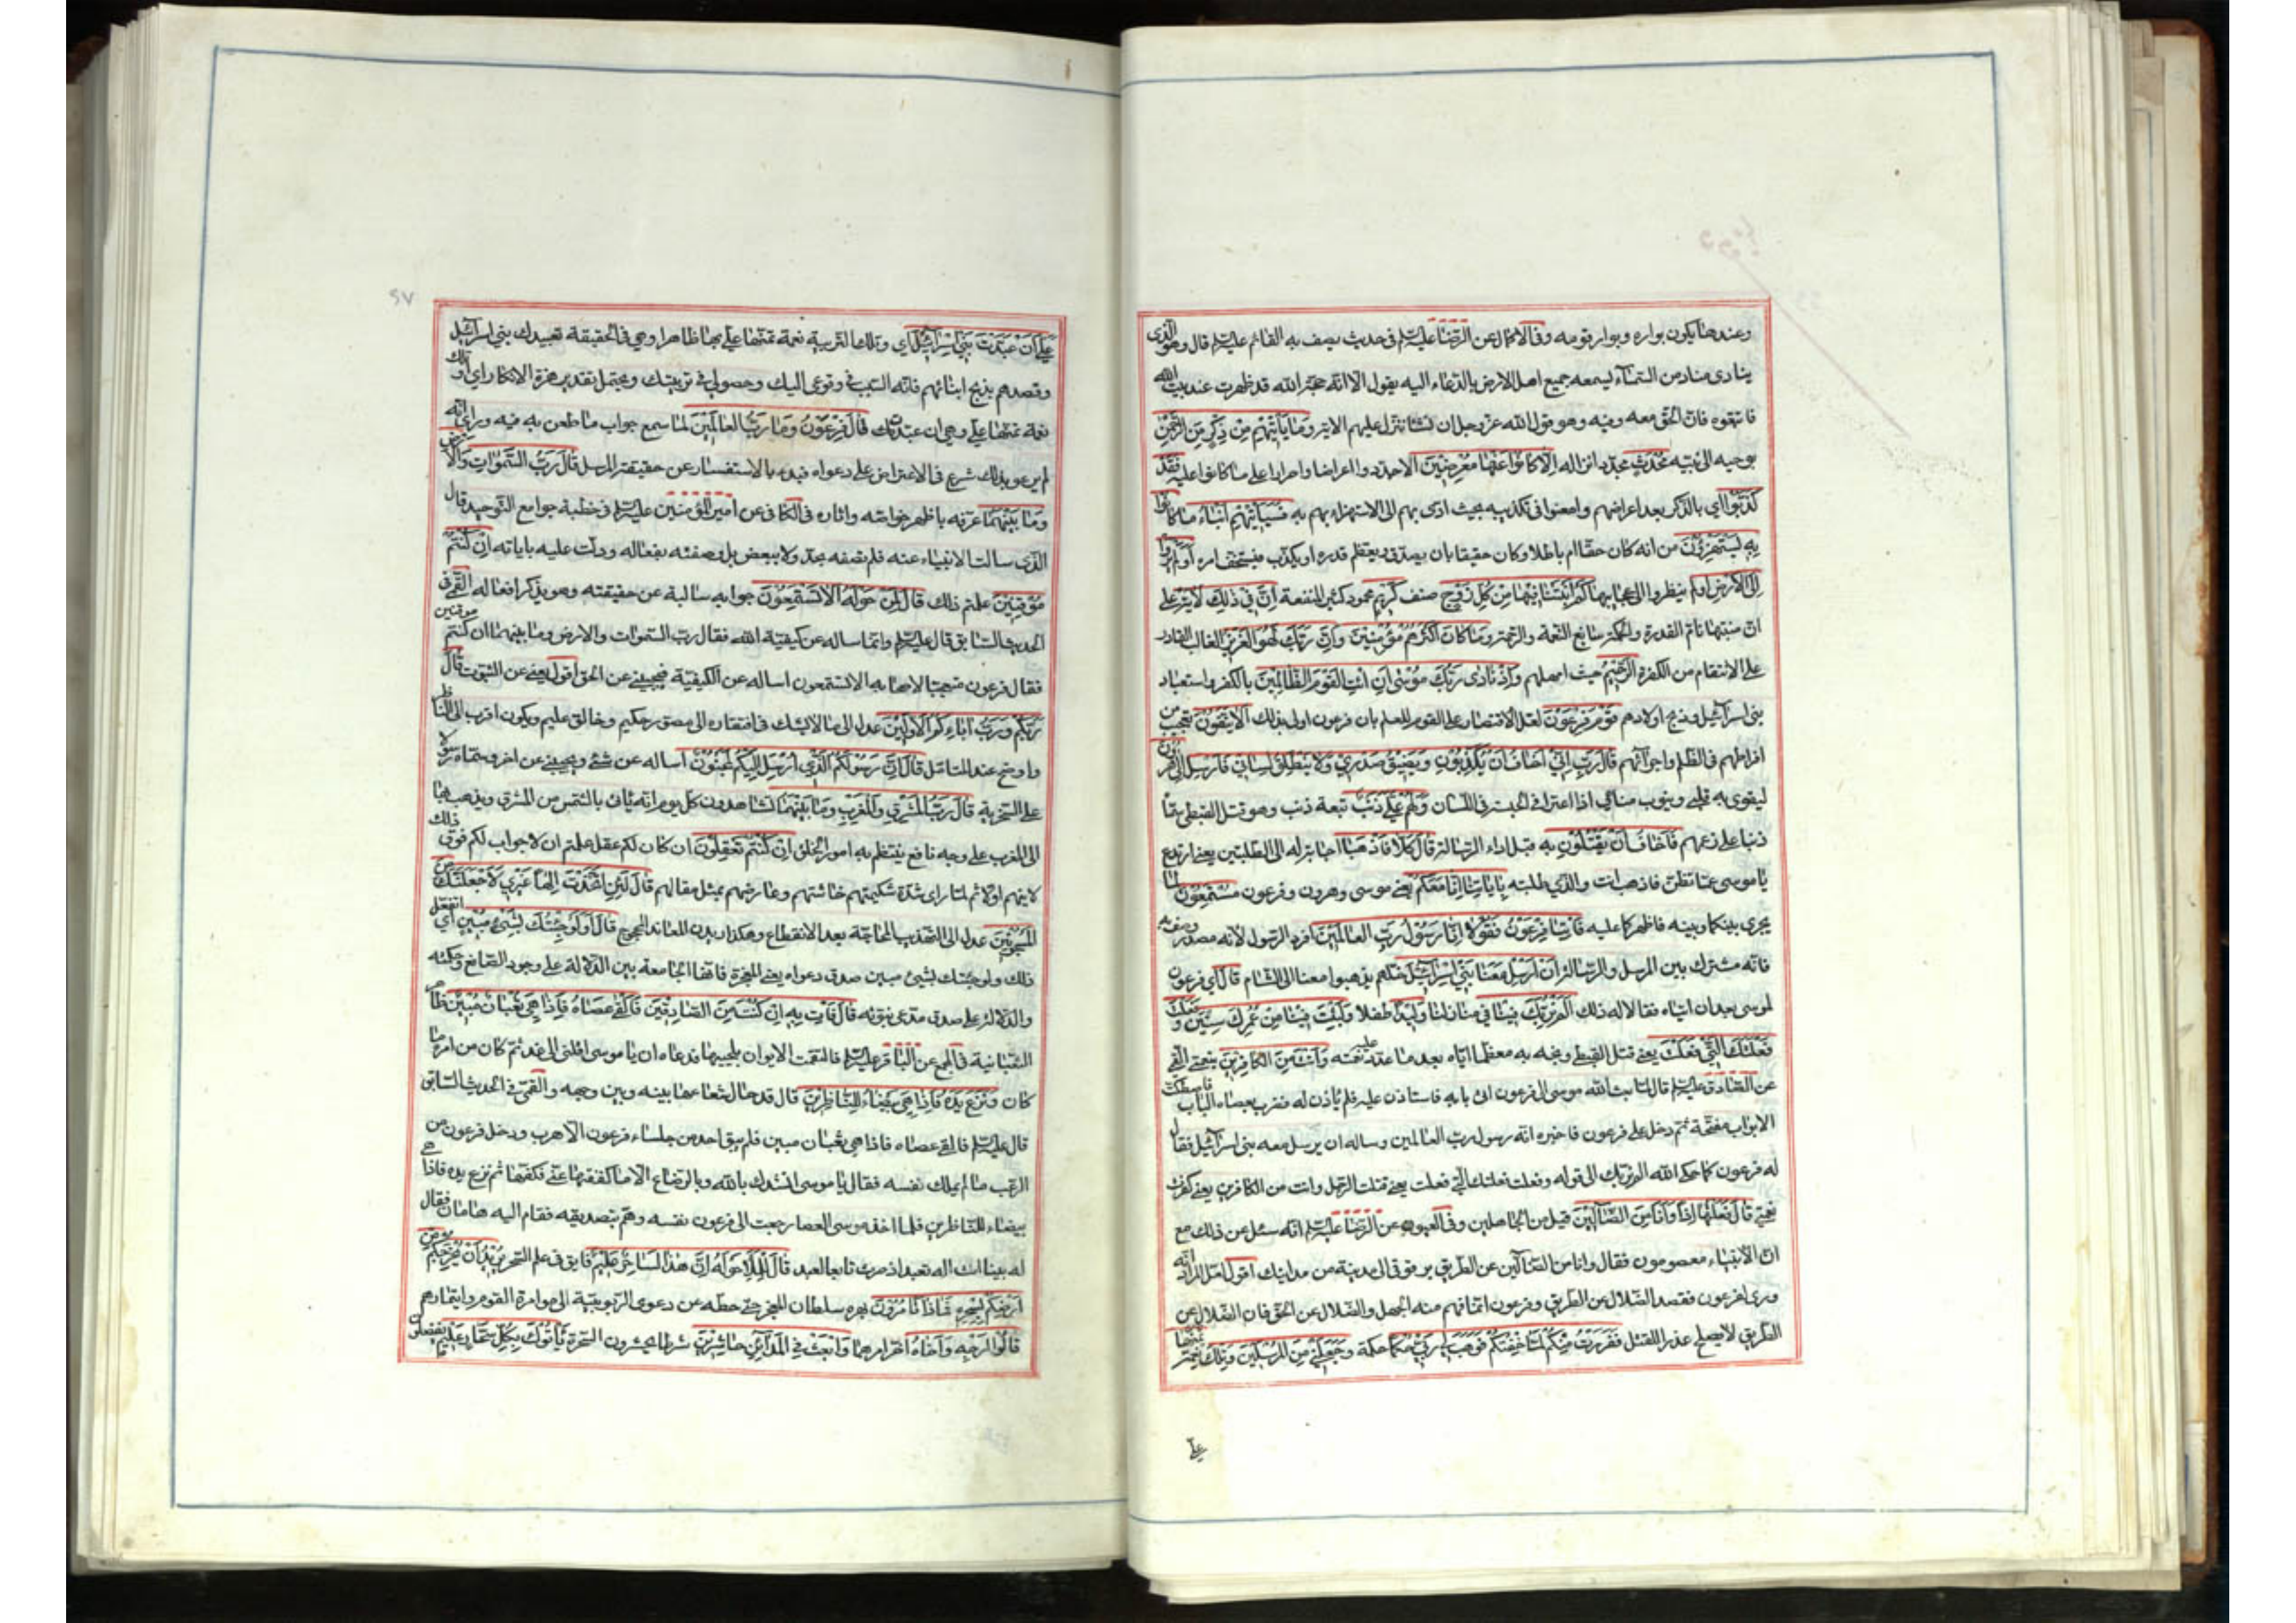 وعندها يكون بواره وبوار قومه وفي الاكمال عن الرضا عليه السلم في حديث يصف به القائم عليه السلم قال وهو الذى
ينادى مناد من السماء ليسمعه جميع اهل الارض بالدعاء اليه يقول الا ان حجة الله قد ظهرت عند بيت الله
فاتبعوه فان الحق معه وفيه وهو قول الله عز وجل ان نشا ننزل عليهم الاية وما يأتيهم من ذكر من الرحمن
يوحيه الى نبيه محدث مجدد انزاله الا كانوا عنها معرضين الا جددوا اعراضا واصرارا على ما كانوا عليه فقد
كذبوا اي بالذكر بعد اعراضهم وامعنوا في تكذيبه بحيث ادى بهم الى الاستهزاء به فسيأتيهم انباء ما كانوا
به يستهزؤن من انه كان حقا ام باطلا وكان حقيقا بان يصدق ويعظم قدره او يكذب فيستخف امره اولم يروا
الى الارض اولم ينظروا الى عجايبها كم انبتنا فيها من كل زوج صنف كريم محمود كثير المنفعة ان في ذلك لاية على
ان منبتها تام القدرة والحكمة سابغ النعمة والرحمة وما كان اكثرهم مؤمنين وان ربك لهو العزيز الغالب القادر
على الانتقام من الكفرة الرحيم حيث امهلهم واذ نادى ربك موسى ان ائت القوم الظالمين بالكفر واستعباد
بني اسرائيل وذبح اولادهم قوم فرعون لعل الاقتصار على القوم للعلم بان فرعون اولى بذلك الا يتقون تعجيب من
افراطهم في الظلم واجترائهم قال رب اني اخاف ان يكذبون ويضيق صدري ولا ينطلق لساني فارسل الى هرون
ليقوى به قلبي وينوب منابي اذا اعتراني الحبسة في اللسان ولهم علي ذنب تبعة ذنب وهو قتل القبطي سماه
ذنبا على زعمهم فاخاف ان يقتلون به قبل اداء الرسالة قال كلا فاذهبا اجابة له الى الطلبتين يعني ارتدع
يا موسى عما تظن فاذهب انت والذي طلبته بآياتنا انا معكم يعني موسى وهرون وفرعون مستمعون لما
يجرى بينكما وبينه فاظهركما عليه فأتيا فرعون فقولا انا رسول رب العالمين افرد الرسول لانه مصدر وصف به
فانه مشترك بين المرسل والرسالة ان ارسل معنا بني اسرائيل خلهم يذهبوا معنا الى الشام قال اي فرعون
لموسى بعد ان اتياه فقالا له ذلك الم نربك فينا في منازلنا وليدا طفلا ولبثت فينا من عمرك سنين وفعلت
فعلتك التي فعلت يعني قتل القبطي وبخه به معظما اياه بعد ما عدد عليه نعمته وانت من الكافرين بنعمتي القمي
عن الصادق عليه السلم قال لما بعث الله موسى الى فرعون اتى بابه فاستاذن عليه فلم يأذن له فضرب بعصاه الباب فاصطكت
الابواب مفتحة ثم دخل على فرعون فاخبره انه رسول رب العالمين وساله ان يرسل معه بني اسرائيل فقال
له فرعون كما حكى الله الم نربك الى قوله وفعلت فعلتك التي فعلت يعني قتلت الرجل وانت من الكافرين يعني كفرت
نعمتي قال فعلتها اذا وانا من الضالين قيل من الجاهلين وفي العيون عن الرضا عليه السلم انه سئل عن ذلك مع
ان الانبياء معصومون فقال وانا من الضالين عن الطريق بوقوعي الى مدينة من مداينك اقول لعل المراد انه
ورى لفرعون فقصد الضلال عن الطريق وفرعون انما فهم منه الجهل والضلال عن الحق فان الضلال عن
الطريق لا يصلح عذرا للقتل ففررت منكم لما خفتكم فوهب لي ربي حكما حكمة وجعلني من المرسلين وتلك نعمة تمنها
علي
٢٧
علي ان عبدت بني اسرائيل اي وتلك التربية نعمة تمنها علي بها ظاهرا وهي في الحقيقة تعبيدك بني اسرائيل
وقصدهم بذبح ابنائهم فانه السبب في وقوعي اليك وحصولي في تربيتك ويحتمل تقدير همزة الانكار اي او تلك
نعمة تمنها علي وهي ان عبدت قال فرعون وما رب العالمين لما سمع جواب ما طعن به فيه وراى انه
لم يرعو بذلك شرع في الاعتراض على دعواه فبدء بالاستفسار عن حقيقة المرسل قال رب السموات والارض
وما بينهما عرفه باظهر خواصه واثاره في الكافي عن امير المؤمنين عليه السلم في خطبة جوامع التوحيد قال
الذي سالت الانبياء عنه فلم تصفه بحد ولا ببعض بل وصفته بفعاله ودلت عليه باياته ان كنتم
موقنين علمتم ذلك قال لمن حوله الا تستمعون جوابه سالته عن حقيقته وهو يذكر افعاله القمي في
الحديث السابق قال عليه السلم وانما ساله عن كيفية الله فقال رب السموات والارض وما بينهما ان كنتم موقنين
فقال فرعون متعجبا لاصحابه الا تستمعون اساله عن الكيفية فيجيبني عن الحق اقول يعني عن الثبوت قال
ربكم ورب آبائكم الاولين عدل الى ما لا يشك في افتقاره الى مصور حكيم وخالق عليم ويكون اقرب الى الناظر
واوضح عند المتامل قال ان رسولكم الذي ارسل اليكم لمجنون اساله عن شئ ويجيبني عن اخر وسماه رسولا
على السخرية قال رب المشرق والمغرب وما بينهما تشاهدون كل يوم انه يأتي بالشمس من المشرق ويذهب بها
الى المغرب على وجه نافع ينتظم به امور الخلق ان كنتم تعقلون ان كان لكم عقل علمتم ان لا جواب لكم فوق ذلك
لاينهم اولا ثم لما راى شدة شكيمتهم خاشنهم وعارضهم بمثل مقالهم قال لئن اتخذت الها غيري لاجعلنك من
المسجونين عدل الى التهديد عن المحاجة بعد الانقطاع وهكذا ديدن المعاند المحجوج قال اولو جئتك بشئ مبين اي اتفعل
ذلك ولو جئتك بشئ مبين صدق دعواي يعني المعجزة فانها الجامعة بين الدلالة على وجود الصانع وحكمته
والدلالة على صدق مدعي نبوته قال فأت به ان كنت من الصادقين فالقى عصاه فاذا هي ثعبان مبين ظاهر
الثعبانية في المجمع عن الباقر عليه السلم فالتقمت الايوان بلحييها فدعاه ان يا موسى اقلني الى غد ثم كان من امره ما
كان ونزع يده فاذا هي بيضاء للناظرين قال قد حال شعاعها بينه وبين وجهه والقمي في الحديث السابق
قال عليه السلم فالقى عصاه فاذا هي ثعبان مبين فلم يبق احد من جلساء فرعون الا هرب ودخل فرعون من
الرعب ما لم يملك نفسه فقال يا موسى انشدك بالله وبالرضاع الا ما كففتها عني فكفها ثم نزع يده فاذا هي
بيضاء للناظرين فلما اخذ موسى العصا رجعت الى فرعون نفسه وهم بتصديقه فقام اليه هامان فقال
له بينا انت اله تعبد اذ صرت تابعا لعبد قال للملا حوله ان هذا لساحر عليم فايق في علم السحر يريد ان يخرجكم من
ارضكم بسحره فماذا تأمرون بهره سلطان المعجز حتى حطه عن دعوى الربوبية الى موامرة القوم وايتمارهم
قالوا ارجه واخاه اخر امرهما وابعث في المدائن حاشرين شرطا يحشرون السحرة يأتوك بكل سحار عليم يفضلون